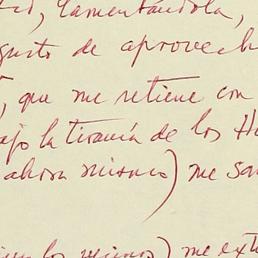 lamentándola,
gusto de aprovech
, que me retiene con
bajo la tiranía de los
ahora mismo) me
) me ext